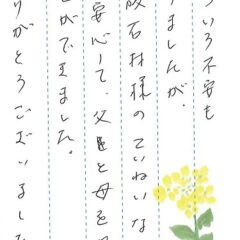 ろいろ不安も
りましたが、
石材様のていねいな
安心して、父と母を
とができました。
りがとうございました